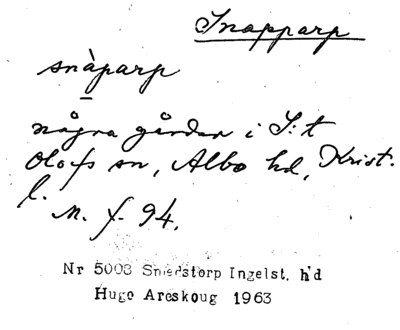 Snapparp
snàparp
några gårdar i S:t
Olofs sn, Albo hd, Krist.
l.
M. f. 94.
Nr 5008 Smedstorp Ingelst. h'd
Hugo Areskoug 1963